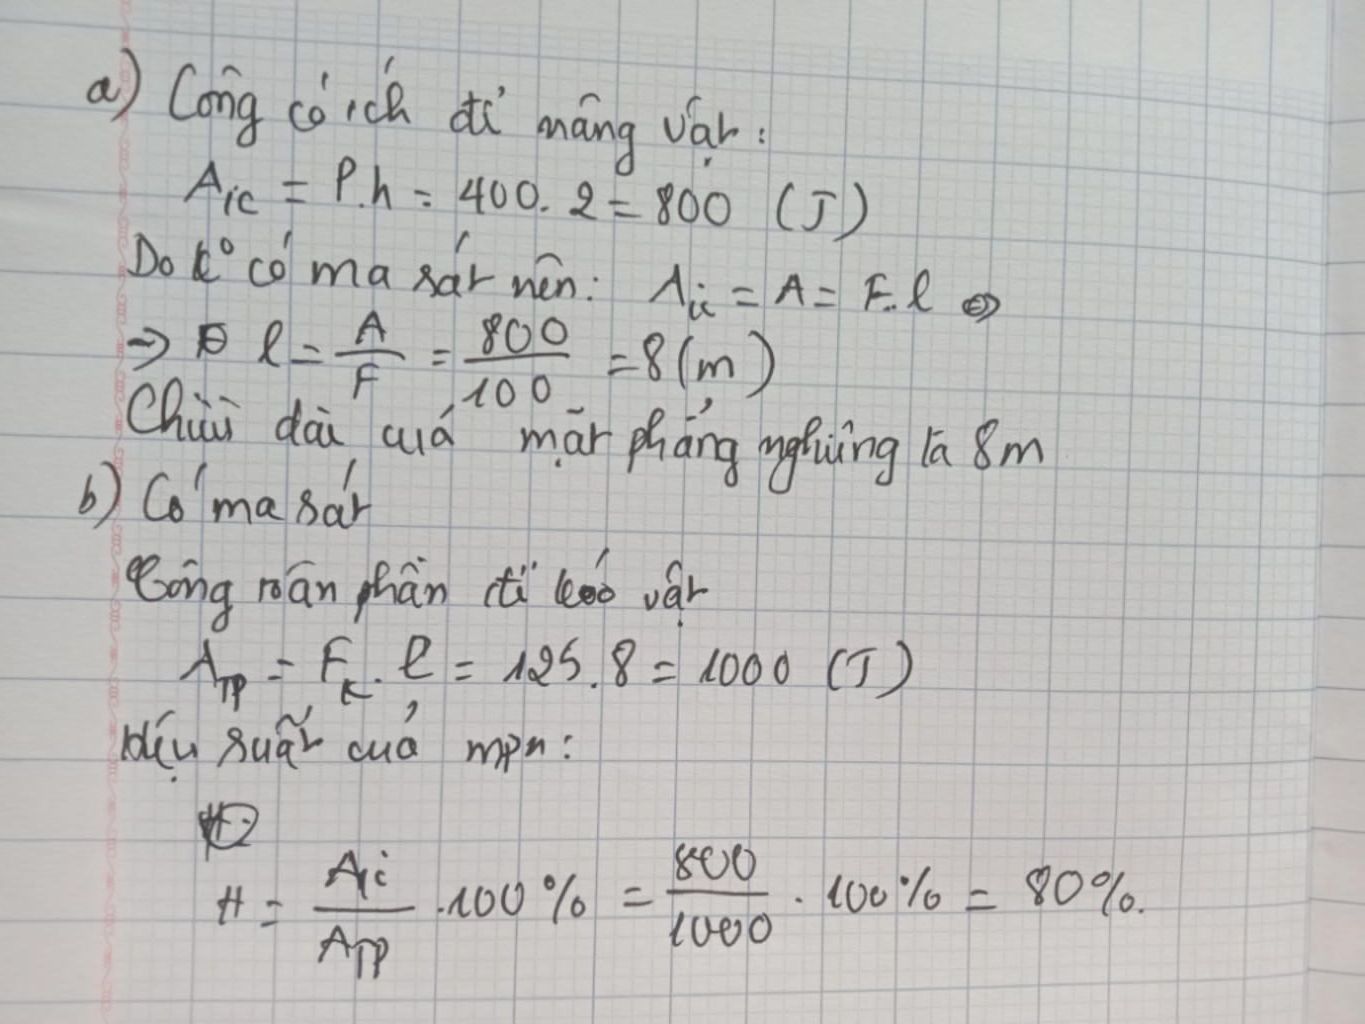 a) Công có ích để nâng vật:
Aic = P.h = 400. 2 = 800 (J)
Do k° có ma sát nên: Aic = A = F.l ⇔
→ l = A/F = 800/100 = 8 (m)
Chiều dài của mặt phẳng nghiêng là 8m
b) Có ma sát
Công toàn phần để kéo vật
ATP = Fk. l = 125.8 = 1000 (J)
Hiệu suất của mpn:
H = Aic/ATP .100% = 800/1000 . 100% = 80%.